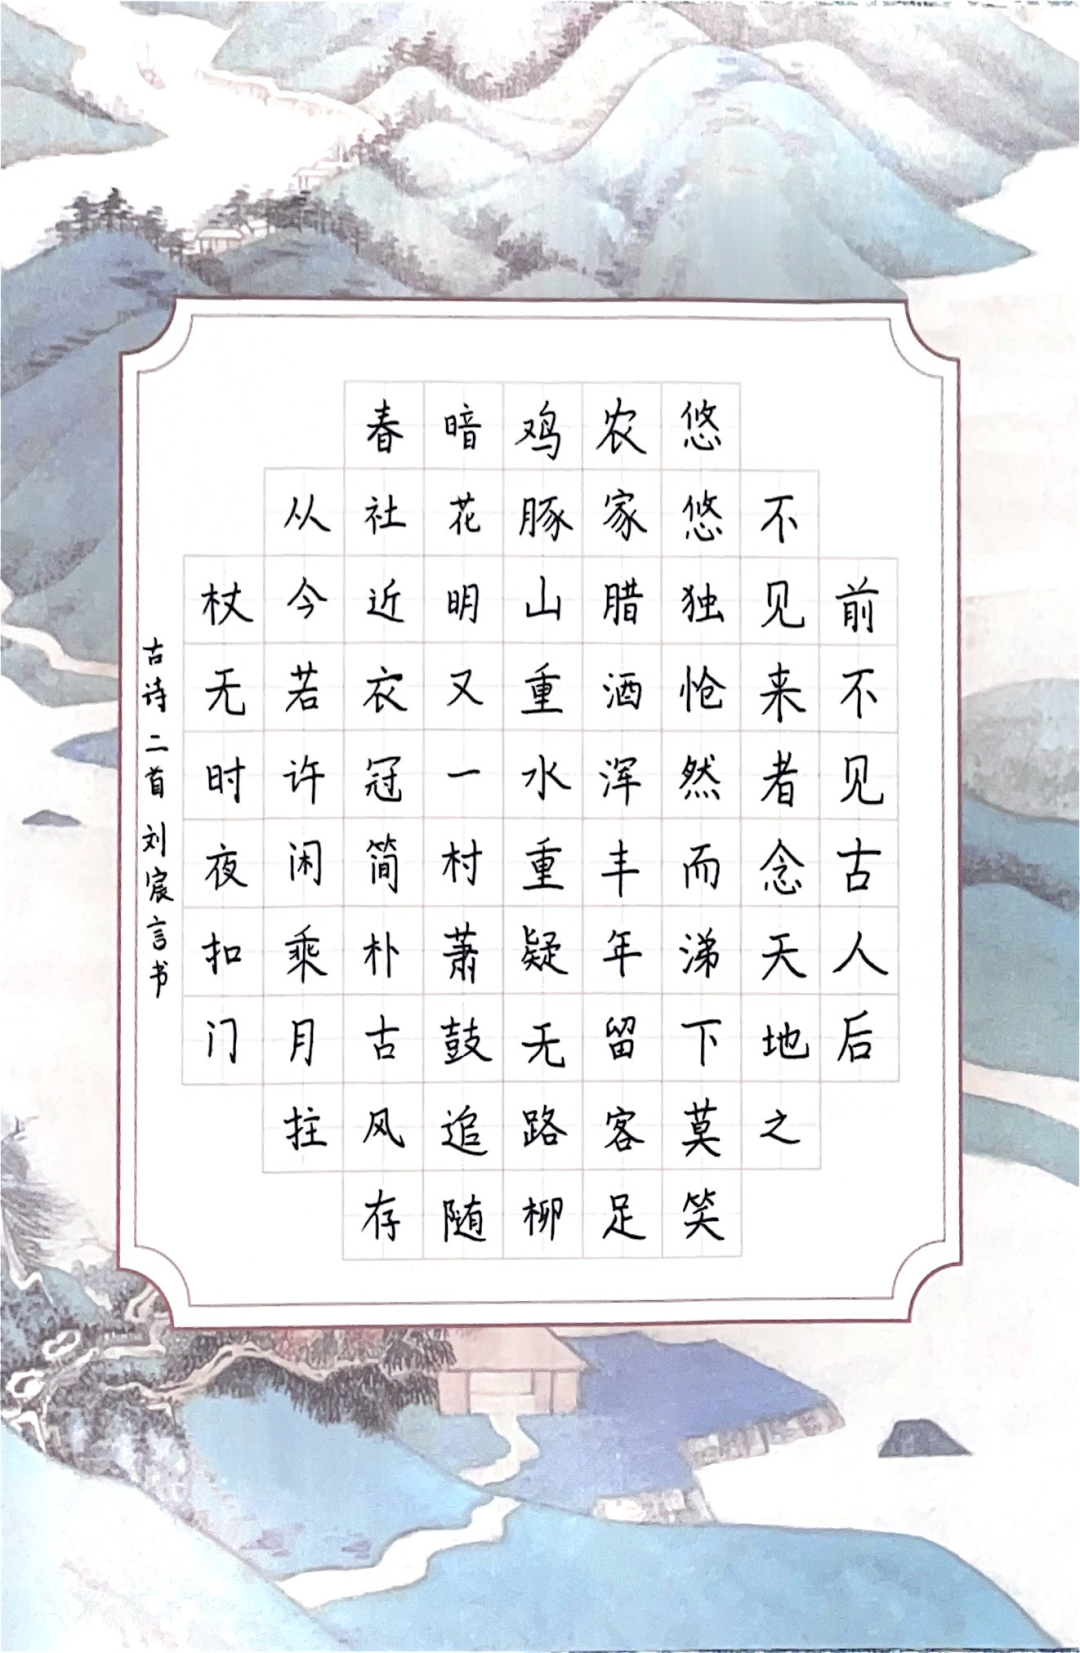 前不见古人后
不见来者念天地之
悠悠独怆然而涕下莫笑
农家腊酒浑丰年留客足
鸡豚山重水重疑无路柳
暗花明又一村萧鼓追随
春社近衣冠简朴古风存
从今若许闲乘月拄
杖无时夜扣门
古诗二首 刘宸言书